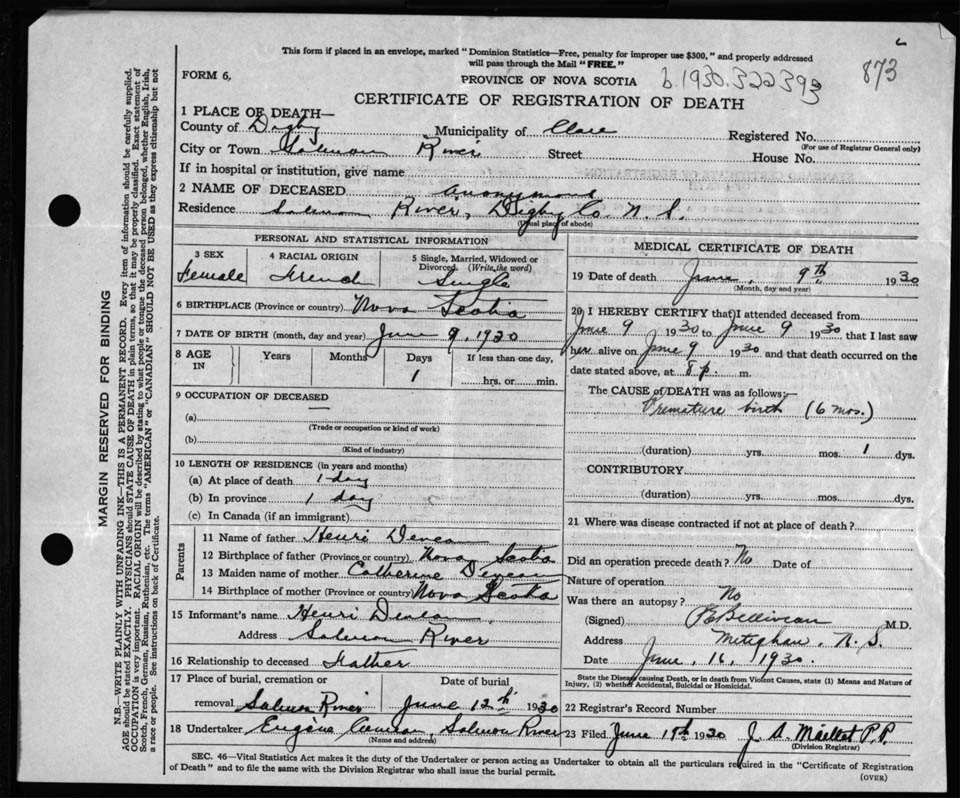 This form if placed in an envelope, marked "Dominion Statistics—Free, penalty for improper use $300," and properly addressed
will pass through the Mail "FREE."
FORM 6,
PROVINCE OF NOVA SCOTIA
b.1930.322393
873
CERTIFICATE OF REGISTRATION OF DEATH
1 PLACE OF DEATH—
County of Digby Municipality of Clare Registered No.
(For use of Registrar General only)
City or Town Salmon River Street House No.
If in hospital or institution, give name
2 NAME OF DECEASED Anonymous
Residence Salmon River, Digby Co. N. S.
(Usual place of abode)
PERSONAL AND STATISTICAL INFORMATION
3 SEX
Female
4 RACIAL ORIGIN
French
5 Single, Married, Widowed or
Divorced. (Write the word)
Single
6 BIRTHPLACE (Province or country) Nova Scotia
7 DATE OF BIRTH (month, day and year) June 9, 1930
8 AGE
IN
Years Months Days If less than one day,
1 hrs. or min.
9 OCCUPATION OF DECEASED
(a)
(Trade or occupation or kind of work)
(b)
(Kind of industry)
10 LENGTH OF RESIDENCE (in years and months)
(a) At place of death 1 day
(b) In province 1 day
(c) In Canada (if an immigrant)
Parents
11 Name of father Henri
12 Birthplace of father (Province or country) Nova Scotia
13 Maiden name of mother Catherine
14 Birthplace of mother (Province or country) Nova Scotia
15 Informant's name Henri
Address Salmon River
16 Relationship to deceased Father
17 Place of burial, cremation or Date of burial
removal Salmon River June 12th 1930
18 Undertaker Eugène Salmon River
(Name and address)
MEDICAL CERTIFICATE OF DEATH
19 Date of death June, 9th 1930
(Month, day and year)
20 I HEREBY CERTIFY that I attended deceased from
June 9 1930 to June 9 1930 that I last saw
her alive on June 9 1930 and that death occurred on the
date stated above, at 8 p. m.
The CAUSE of DEATH was as follows:—
Premature birth (6 mos.)
(duration) yrs. mos. 1 dys.
CONTRIBUTORY
(duration) yrs. mos. dys.
21 Where was disease contracted if not at place of death?
Did an operation precede death? No Date of
Nature of operation
Was there an autopsy? No
(Signed) M.D.
Address Meteghan, N. S.
Date June, 16, 1930.
State the Disease causing Death, or in death from Violent Causes, state (1) Means and Nature of
Injury, (2) whether Accidental, Suicidal or Homicidal.
22 Registrar's Record Number
23 Filed June 19th 1930 J. A. Maillet P.P.
(Division Registrar)
SEC. 46—Vital Statistics Act makes it the duty of the Undertaker or person acting as Undertaker to obtain all the particulars required in the "Certificate of Registration
of Death" and to file the same with the Division Registrar who shall issue the burial permit.
(OVER)
MARGIN RESERVED FOR BINDING
N.B.—WRITE PLAINLY WITH UNFADING INK—THIS IS A PERMANENT RECORD. Every item of information should be carefully supplied.
AGE should be stated EXACTLY. PHYSICIANS should STATE CAUSE OF DEATH in plain terms, so that it may be properly classified. Exact statement of
OCCUPATION is very important. RACIAL ORIGIN will be described by stating to what people or tongue the deceased person belonged, whether English, Irish,
Scotch, French, German, Russian, Ruthenian, etc. The terms "AMERICAN" or "CANADIAN" SHOULD NOT BE USED as they express citizenship but not
a race or people. See instructions on back of Certificate.